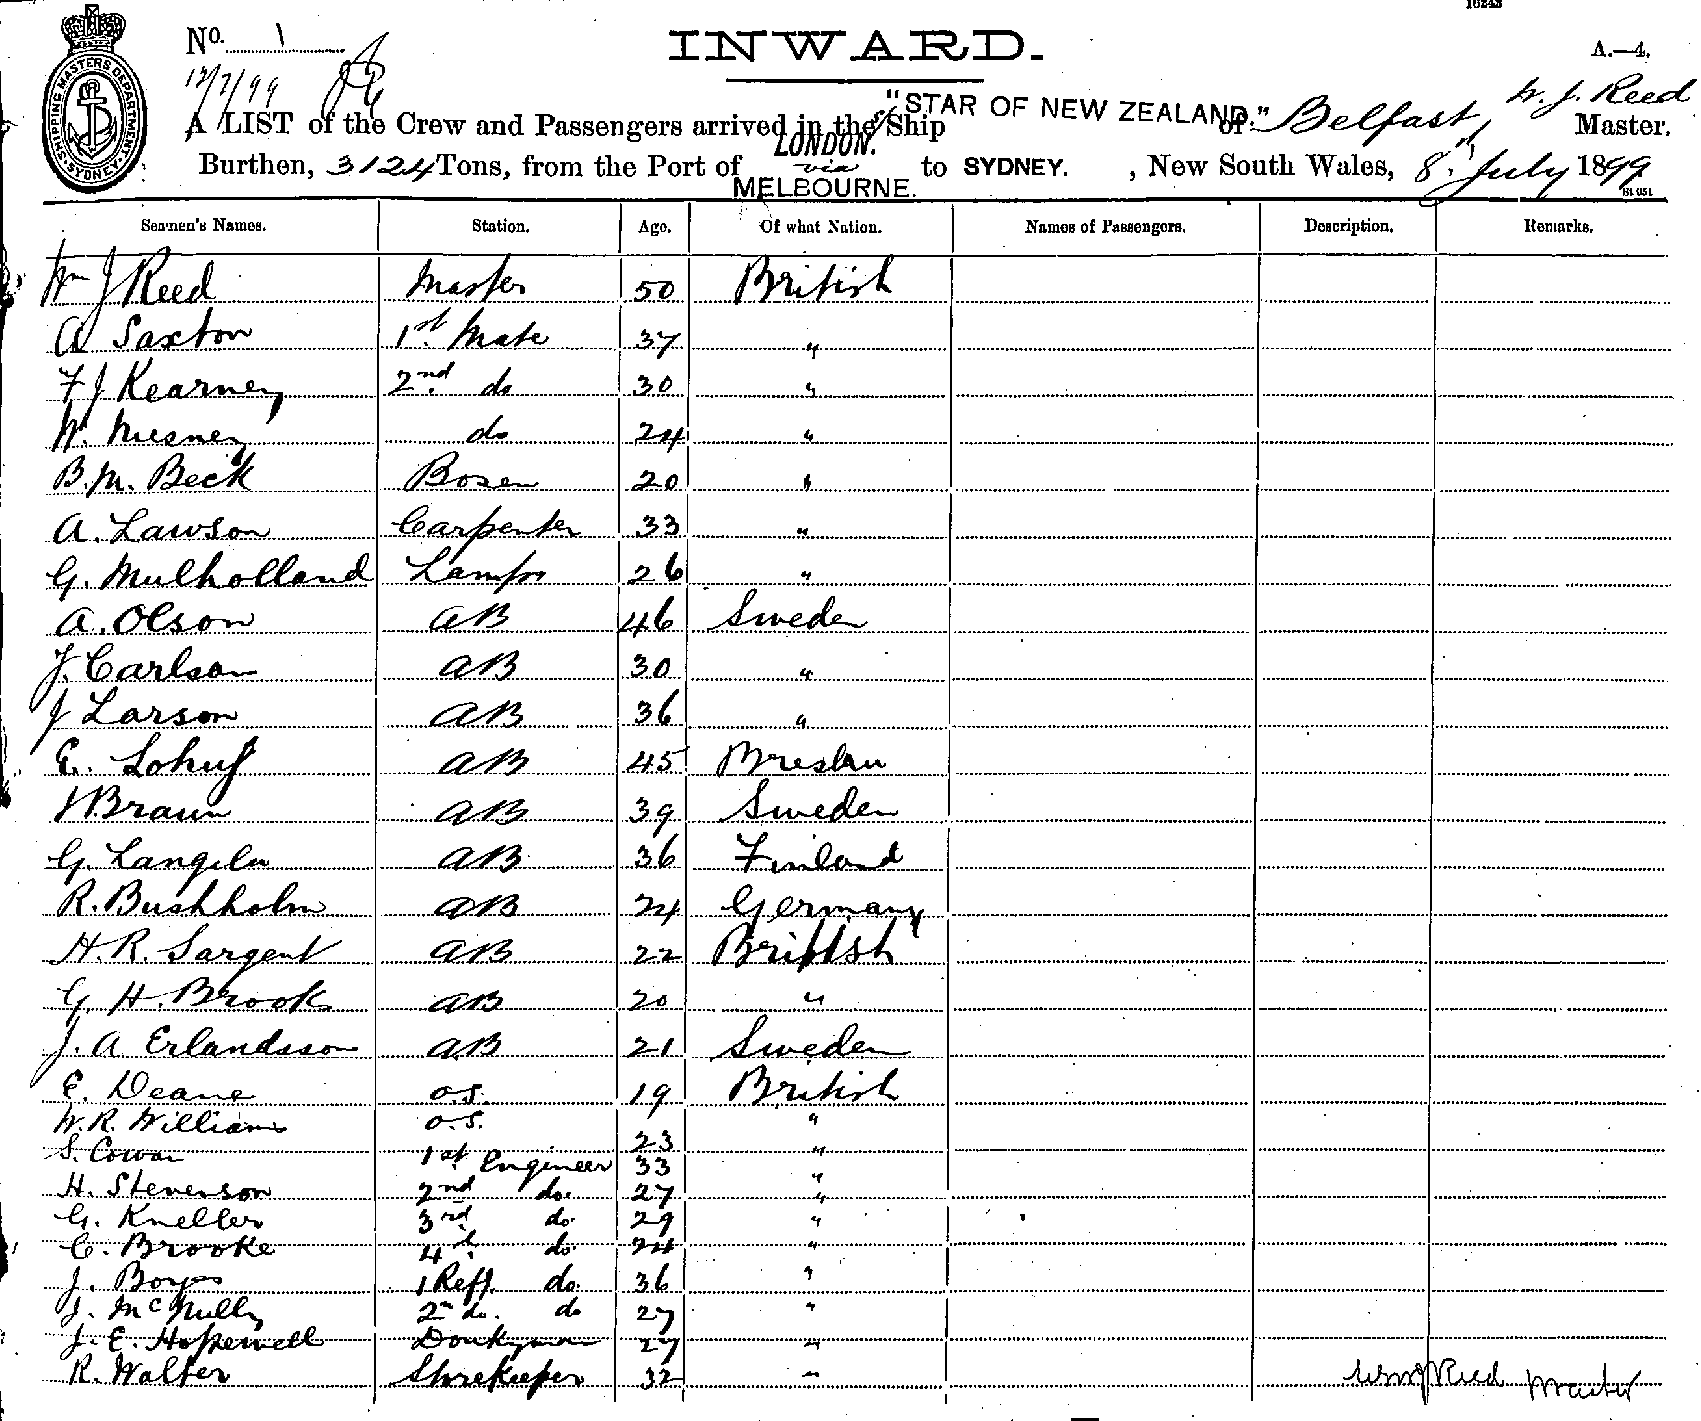 16243
No. 1 INWARD. A.—4.
12/7/99
W. J. Reed
A LIST of the Crew and Passengers arrived in the S/Ship "STAR OF NEW ZEALAND." of Belfast, Master.
Burthen, 3124 Tons, from the Port of LONDON. via MELBOURNE. to SYDNEY. , New South Wales, 8th July 1899
SHIPPING MASTERS DEPARTMENT SYDNEY
Seamen's Names. Station. Age. Of what Nation. Names of Passengers. Description. Remarks.
Wm J Reed Master 50 British
A Saxton 1st. Mate 37 "
F J Kearney 2nd. do 30 "
W. Mesney do 24 "
B. M. Beck Bosen 20 "
A. Lawson Carpenter 33 "
G. Mulholland Lamps 26 "
A. Olson AB 46 Sweden
J. Carlson AB 30 "
J Larson AB 36 "
E. AB 45 Breslau
Braun AB 39 Sweden
G. AB 36 Finland
R. Bushholm AB 24 Germany
H. R. Sargent AB 22 British
G. H. Brook AB 20 "
J. A Erlandsson AB 21 Sweden
E. Deane o.s. 19 British
W. R. Williams o.s. 23 "
S. Cowan 1st Engineer 33 "
H. Stevenson 2nd do. 27 "
G. Kneller 3rd do 29 "
C. Brooke 4th do 24 "
J. Boyes 1 Refr. do. 36 "
J. McNully 2nd do. do 27 "
J. E. Hopewell Donkyman 27 "
R. Walter Storekeeper 32 "
Wm J Reed Master